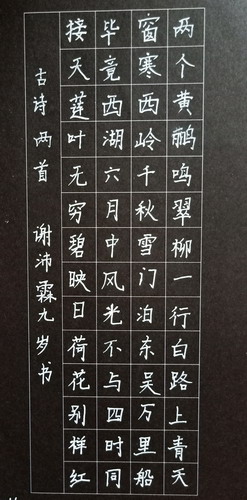 两个黄鹂鸣翠柳一行白路上青天
窗寒西岭千秋雪门泊东吴万里船
毕竟西湖六月中风光不与四时同
接天莲叶无穷碧映日荷花别样红
古诗两首 谢沛霖九岁书